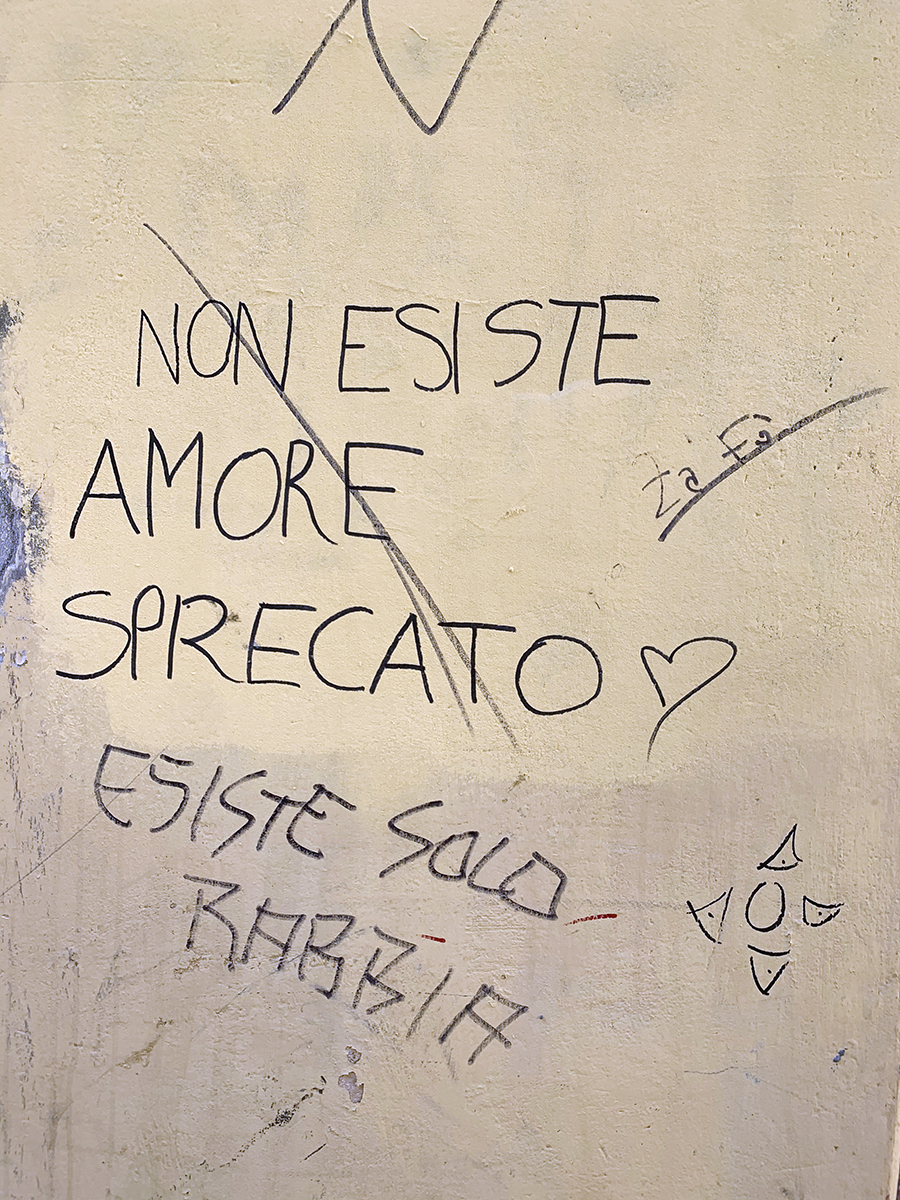 NON ESISTE
AMORE
SPRECATO
ESISTE SOLO
RABBIA